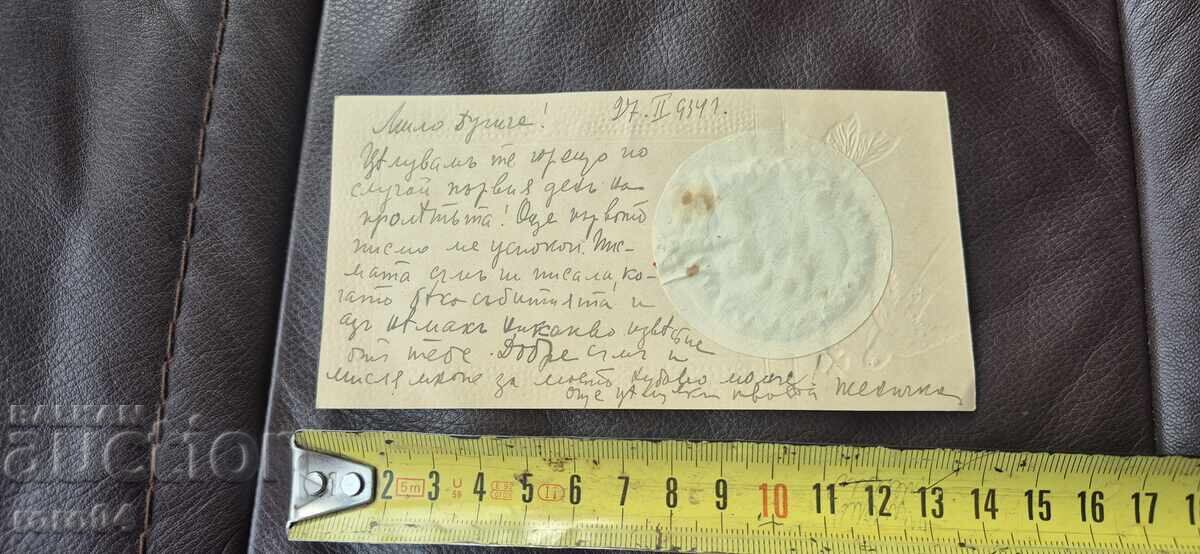 Мило Дугиче! 27.II 934 г.
Цѣлувамъ те горещо по
случай първия день на
пролѣтьта! Още първото
писмо ме успокои. Пис-
мата съмъ ти писала, ко-
гато бѣха събитията и
азъ нѣмахъ никакво известие
отъ тебе. Добре съмъ и
мисля много за моето хубаво момче!
още целувки твоята Женичка
BALKAN
auction
2 3 4 5 6 7 8 9 10 11 12 13 14 15 16 17
5m
II